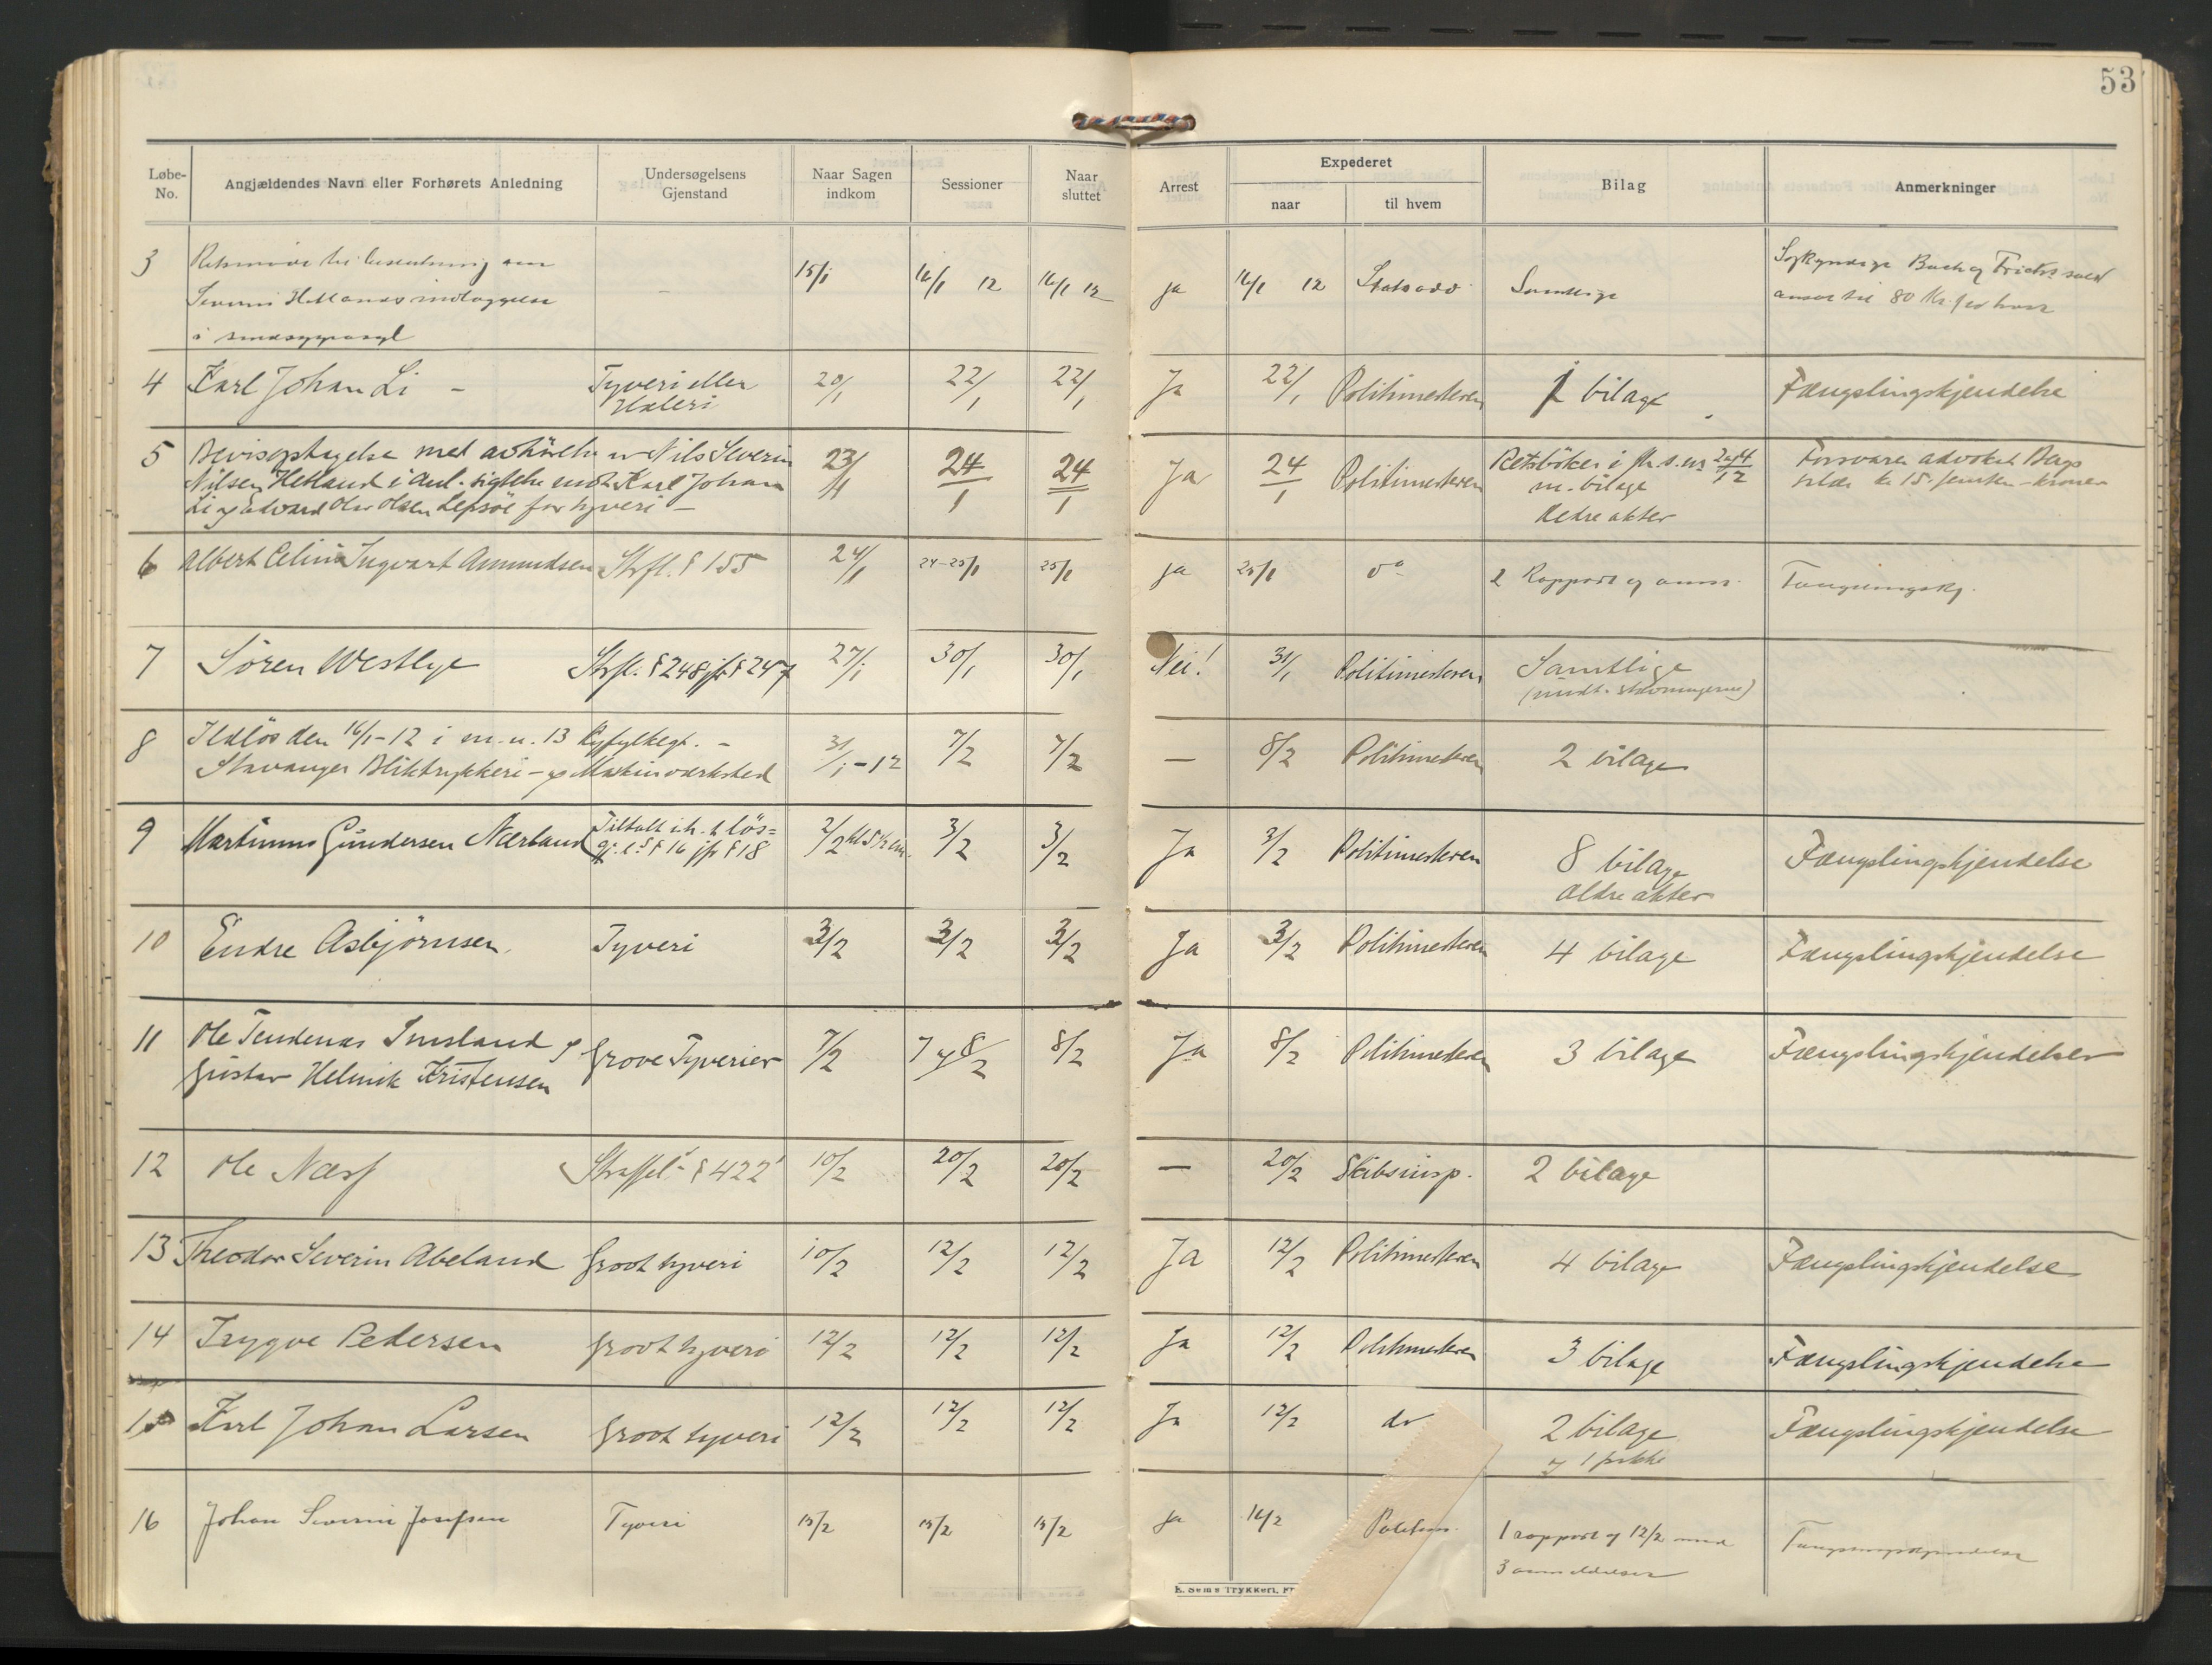 53
Løbe-No. Angjældendes Navn eller Forhørets Anledning Undersøgelsens Gjenstand Naar Sagen indkom Sessioner Naar sluttet Arrest Expederet naar til hvem Bilag Anmerkninger
3 Retsmøde til beslutning om - 15/1 16/1 12 16/1 12 ja 16/1 12 Statsadv. Samtlige Sagkyndige Bach og
Severin Hetlands indlæggelse ansat til 80 Kr. for hver
i sindssygeasyl
4 Karl Johan Li - Tyveri eller 20/1 22/1 22/1 Ja 22/1 Politimesteren 1 bilage Fængslingskjendelse
Hæleri
5 Bevisoptagelse med avhörelse av Nils Severin 23/1 24/1 24/1 Ja 24/1 Politimesteren Retsböker i m. bilage Forsvarer advokat
Nilsen Hetland i anl. sigtelse mot Karl Johan kr 15. femten - kroner
Li og Edvard Olai Olsen Lepsöe for tyveri - Ældre akter
6 Albert Celius Ingvart Ammundsen Strfl. § 155 24/1 24-25/1 25/1 ja 25/1 do 2 Rapport og anm. Fængslingskj.
7 Sören Westlye Strfl. § 248 jfr § 247 27/1 30/1 30/1 Nei! 31/1 Politimesteren Samtlige
(undt. stævningerne)
8 Ildlös den 16/1-12 i m. n. 13 Ryfylkegt. - 31/1-12 7/2 7/2 — 8/2 Politimesteren 2 bilage
Stavanger Bliktrykkeri- og Maskinværksted
9 Martinus Gundersen Nærland Tiltalt i h. t. lös= 2/2 kl 5½ em. 3/2 3/2 Ja 3/2 Politimesteren 8 bilage Fængslingskjendelse
gj. l.s § 16 jfr § 18 ældre akter
10 Endre Asbjörnsen. Tyveri 3/2 3/2 3/2 Ja 3/2 Politimesteren 4 bilage Fængslingskjendelse
11 Ole Tendenas Imsland og Grove Tyverier 7/2 7 og 8/2 8/2 Ja 8/2 Politimesteren 3 bilage Fængslingskjendelser
Gustav Helmik Kristensen
12 Ole Næss Straffel. § 422 10/2 20/2 20/2 — 20/2 Skibsinsp. 2 bilage
13 Theodor Severin Abeland Grovt tyveri 10/2 12/2 12/2 Ja 12/2 Politimesteren 4 bilage Fængslingskjendelse
14 Trygve Pedersen Grovt tyveri 12/2 12/2 12/2 Ja 12/2 Politimesteren 3 bilage Fængslingskjendelse
15 Karl Johan Larsen Grovt tyveri 12/2 12/2 12/2 Ja 12/2 do 2 bilage Fængslingskjendelse
og 1 pakke
16 Johan Severin Josefsen Tyveri 15/2 15/2 15/2 ja 16/2 Politim. 1 rapport af 12/2 med Fængslingskjendelse
3 anmeldelser
E. Sem's Trykkeri, Fr